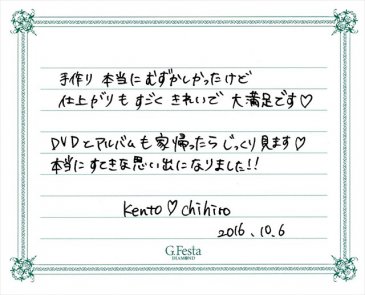 手作り 本当に むずかしかったけど
仕上がりも すごく きれいで 大満足です♡
DVDとアルバムも 家帰ったら じっくり見ます♡
本当に すてきな思い出になりました!!
Kento ♡ chihiro
2016.10.6
G.Festa
DIAMOND